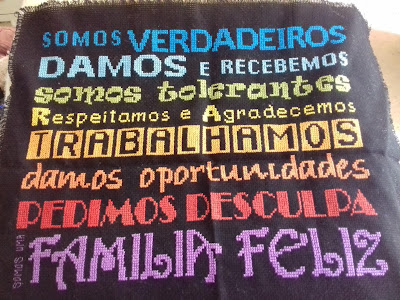 SOMOS VERDADEIROS
DAMOS E RECEBEMOS
somos tolerantes
Respeitamos e Agradecemos
TRABALHAMOS
damos oportunidades
PEDIMOS DESCULPA
SOMOS UMA
FAMILIA FELIZ